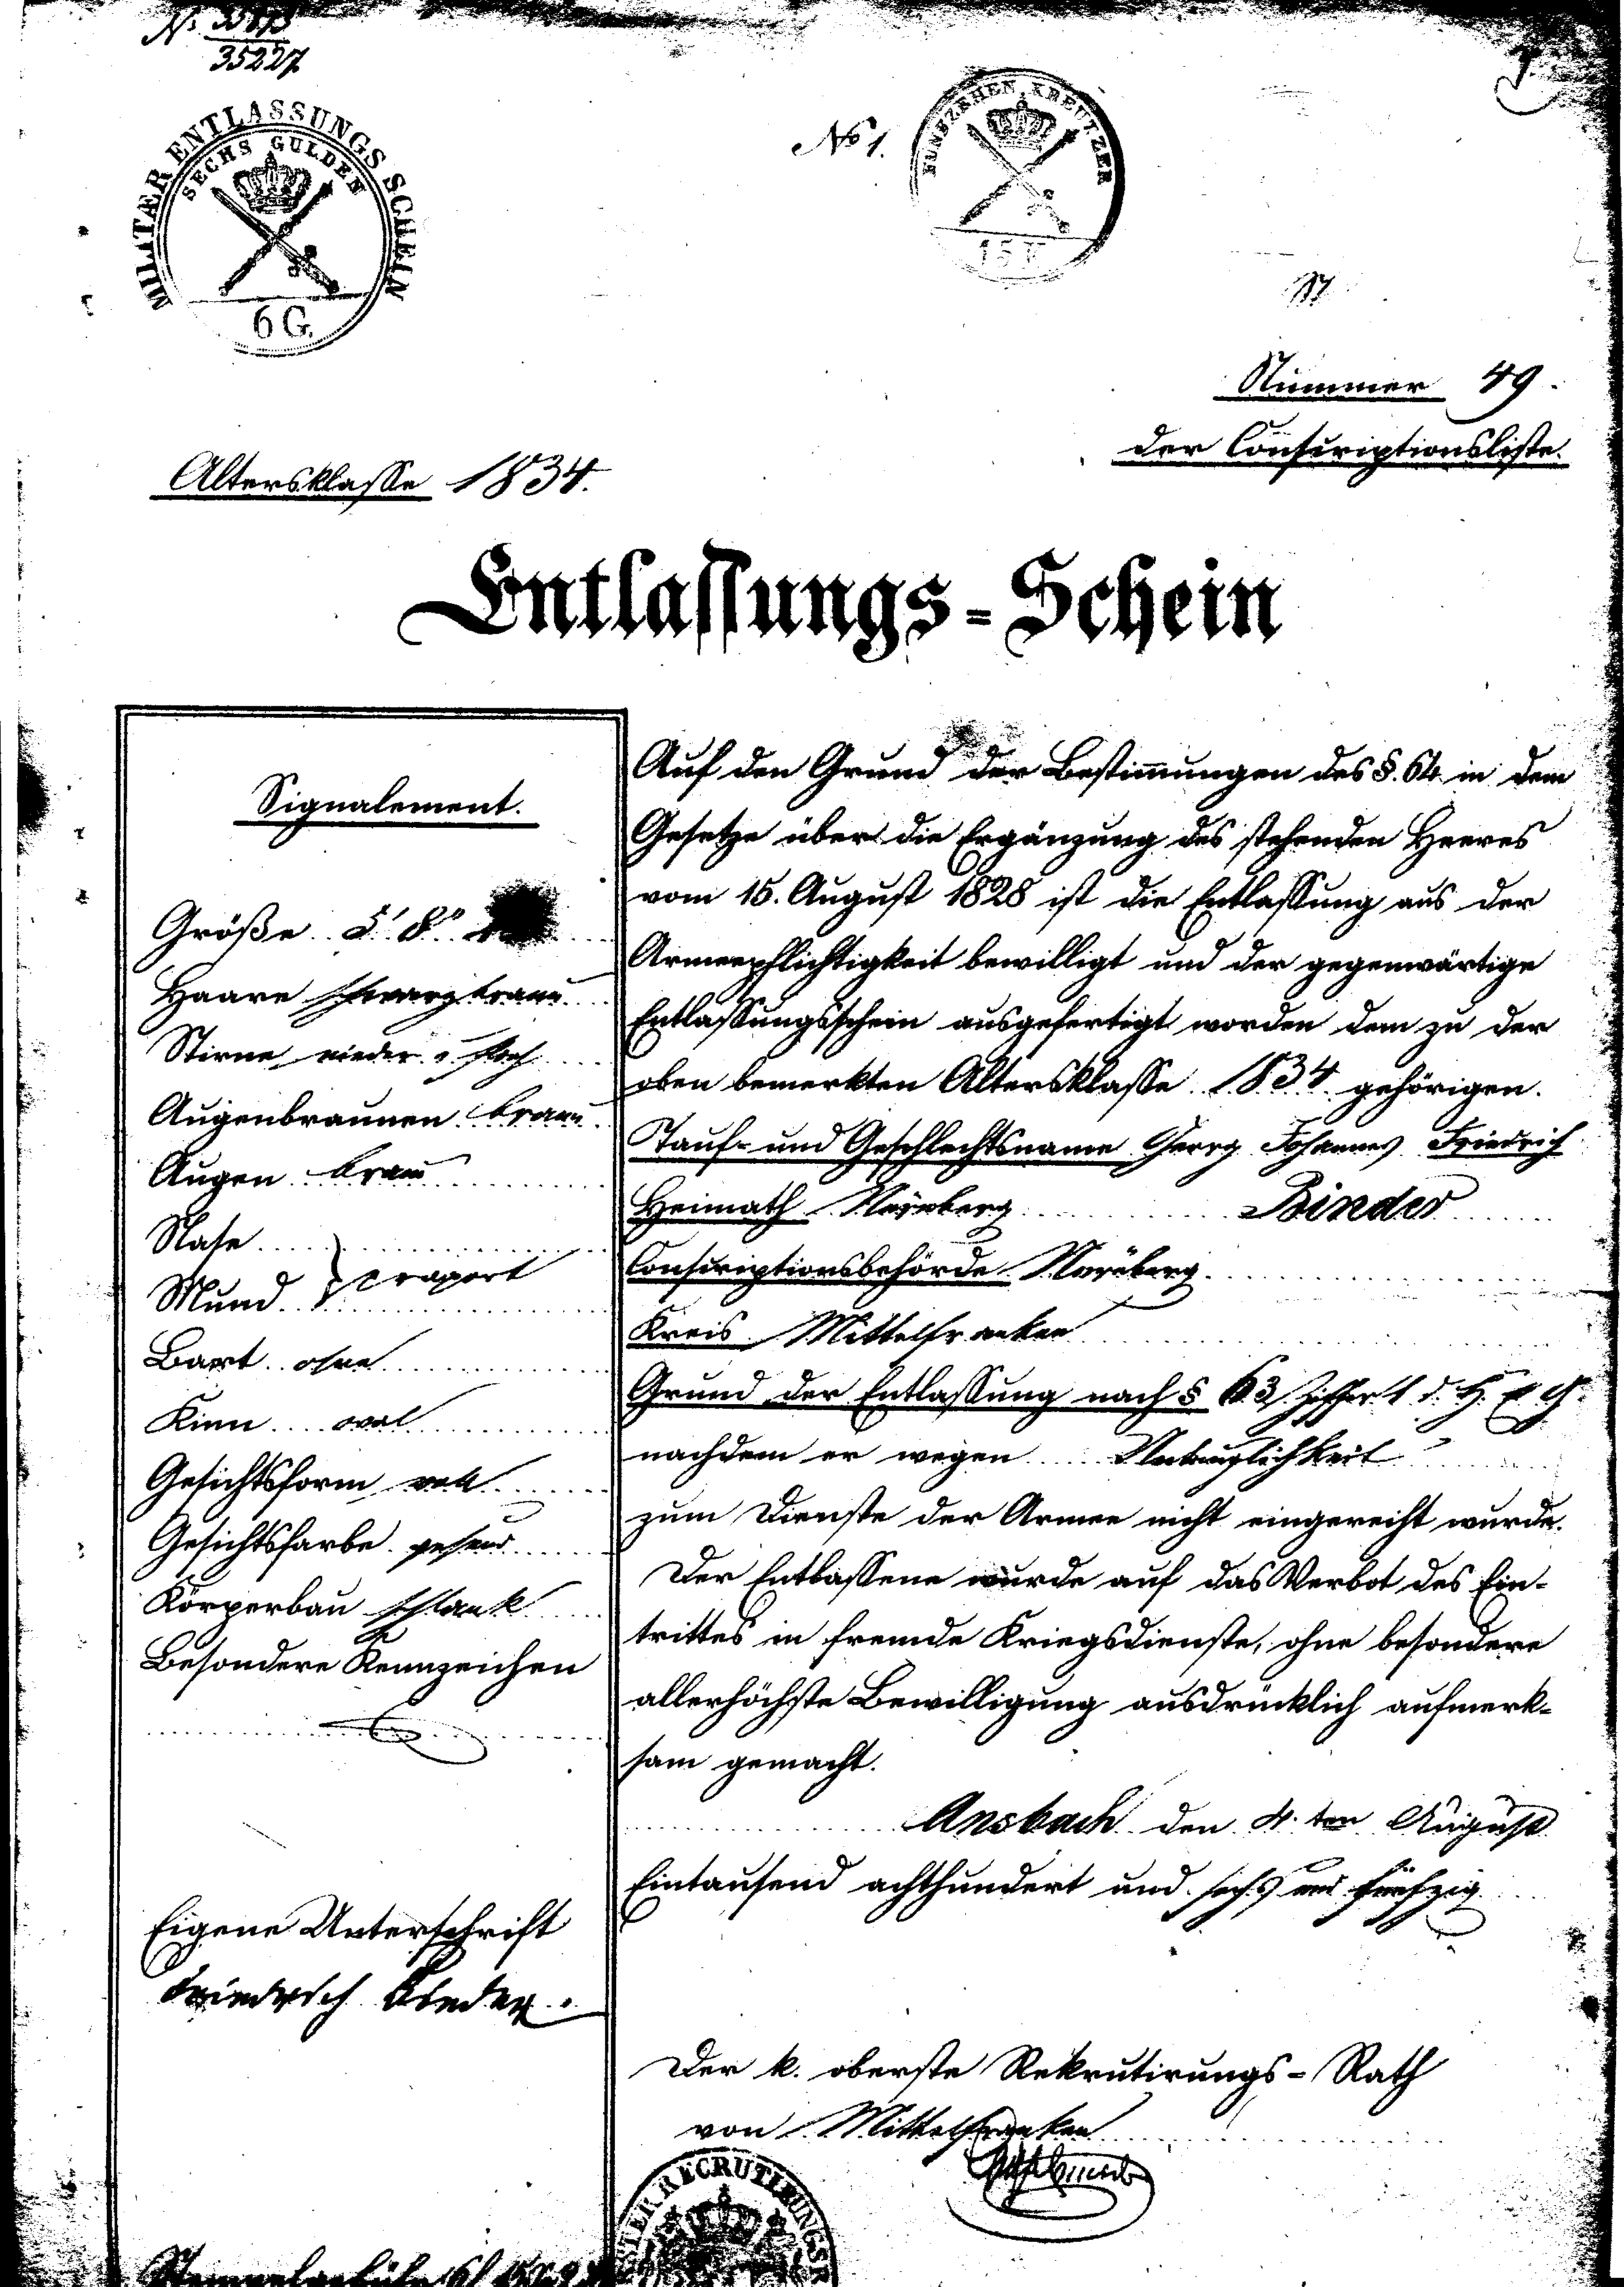 No. 35873
35227
MILITÆR ENTLASSUNGS SCHEIN
SECHS GULDEN
6 G.
No 1.
FUNFZEHEN KREUTZER
15 K
Nummer 49.
der Conscriptionsliste.
Altersklasse 1834.
Entlassungs-Schein
Signalement.
Größe 5' 8"
Haare schwarzbraun
Stirne nieder u. flach
Augenbraunen braun
Augen braun
Nase
Mund } proport
Bart ohne
Kinn oval
Gesichtsform voll
Gesichtsfarbe gesund
Körperbau schlank
Besondere Kennzeichen
Eigene Unterschrift
Friedrich Binder.
Auf den Grund der Bestimmungen des §. 64. in dem
Gesetze über die Ergänzung des stehenden Heeres
vom 15. August 1828 ist die Entlassung aus der
Armeepflichtigkeit bewilligt und der gegenwärtige
Entlassungsschein ausgefertigt worden dem zu der
oben bemerkten Altersklasse 1834 gehörigen.
Tauf- und Geschlechtsname Georg Johannes Friedrich
Heimath Nürnberg Binder
Conscriptionsbehörde Nürnberg
Kreis Mittelfranken
Grund der Entlassung nach § 63 Ziffer 1 d. H. E. G.
nachdem er wegen Untauglichkeit
zum Dienste der Armee nicht eingereiht wurde.
Der Entlassene wurde auf das Verbot des Ein-
trittes in fremde Kriegsdienste, ohne besondere
allerhöchste Bewilligung ausdrücklich aufmerk-
sam gemacht.
Ansbach den 4. ten August
Eintausend achthundert und sechs und fünfzig
Der k. oberste Rekrutirungs-Rath
von Mittelfranken
STER RECRUTIRUNGSR
Stempelgebühr 6 f 15 x